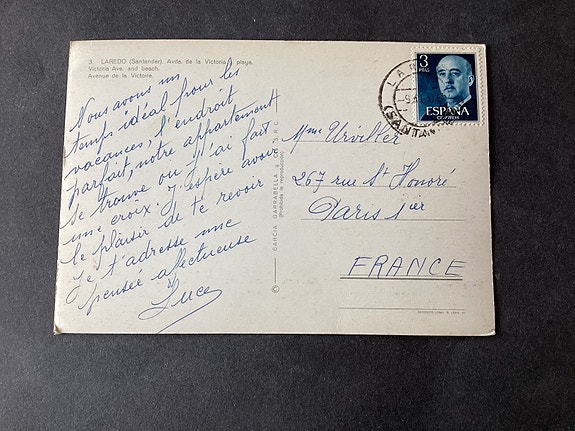 3. LAREDO (Santander). Avda. de la Victoria y playa.
Victoria Ave. and beach.
Avenue de la Victoire.
Nous avons un
temps idéal pour les
vacances, l'endroit
parfait, notre appartement
se trouve ou j'ai fait
une croix. J'espère avoir
le plaisir de te revoir
Je t'adresse une
pensée affectueuse
Luce
GARCIA GARRABELLA Y CIA. S.R.C.
(Prohibida la reproducción)
3
PTAS
ESPAÑA
CORREOS
(SANTA
Mme Urviller
267 rue St Honoré
Paris 1er
FRANCE